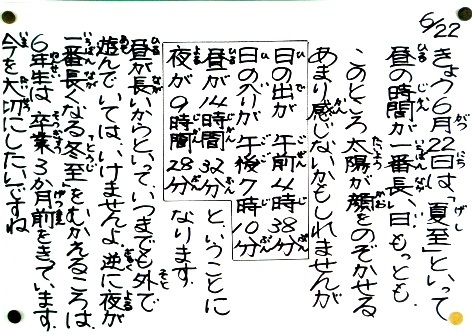 6/22
きょう6月22日は、「夏至」といって
昼の時間が一番長い日。もっとも
このところ太陽が顔をのぞかせる
あまり感じないかもしれませんが
日の出が 午前4時38分
日の入りが 午後7時10分
昼が14時間32分 ということに
夜が9時間28分 なります。
昼が長いからといって、いつまでも外で
遊んでいては、いけませんよ。逆に夜が
一番長くなる冬至をむかえるころは
6年生は、卒業3か月前をきています。
今を大切にしたいですね